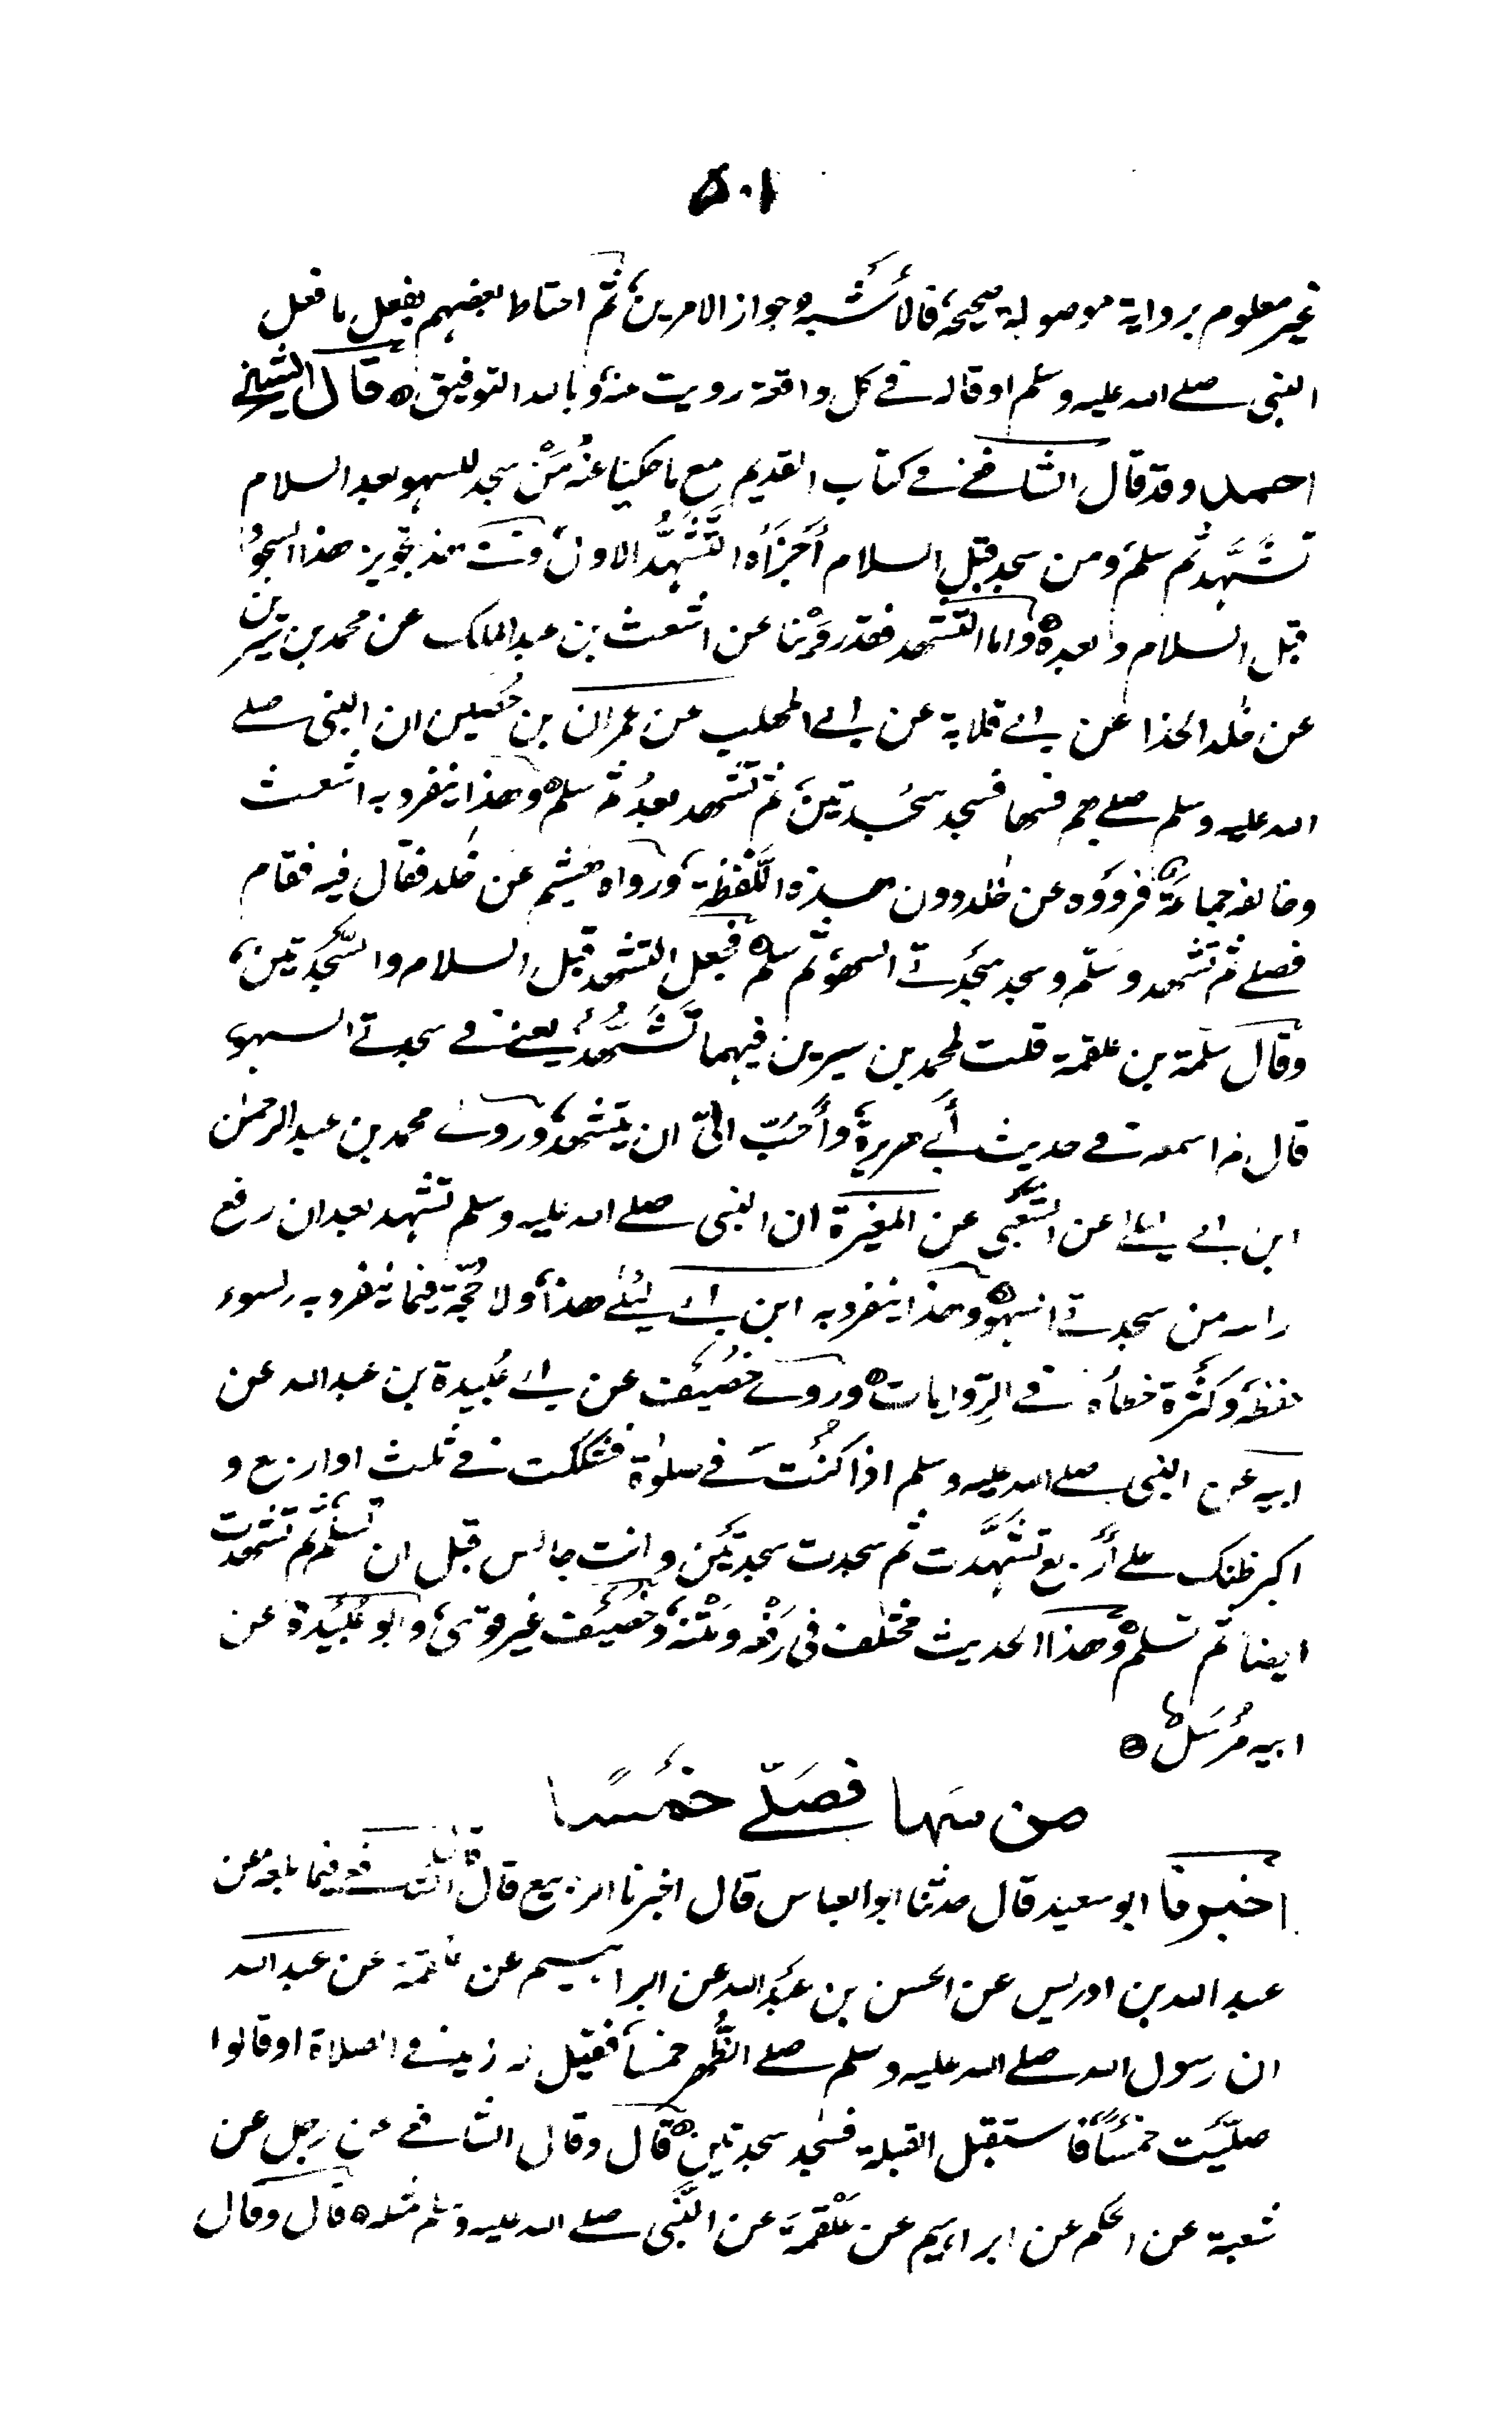 ٥٠١
غير معلوم برواية موصولة صحيحة، فالأشبه جواز الامرين، ثم احتاط بعضهم بفعل ما فعل
النبي صلى الله عليه وسلم او قاله في كل واقعة رويت عنه، وبالله التوفيق ۞ قال الشيخ
احمد وقد قال الشافعي في كتاب القديم مع ما حكينا عنه مَنْ سجد للسهو بعد السلام
تَشَهَّد ثم سلم، ومن سجد قبل السلام أَجْزَأَهُ التَّشَهُّد الاول، تجويز هذا السجود
قبل السلام وبعده ۞ واما التشهد فقد رَوَيْنا عن اشعث بن عبد الملك عن محمد بن سيرين
عن خلد الحذا عن ابي قلابة عن ابي المهلب عن عمران بن حُصَين ان النبي صلى
الله عليه وسلم صلى بهم فسها فسجد سَجْدتين، ثم تشهد بعدُ ثم سلم ۞ وهذا ينفرد به اشعث
وخالفه جماعةٌ فرووه عن خلد دون هذه اللَّفْظة، ورواه هشيم عن خلد فقال فيه فقام
فصلى ثم تشهد وسلّم وسجد سَجْدتي السهو، ثم سلم ۞ فجعل التشهد قبل السلام والسَّجْدتين،
وقال سَلَمة بن علقمة قلت لمحمد بن سيرين فيهما تَشَهُّدٌ يعني في سجدتي السهو،
قال لم اسمعه في حديث أبي هريرة، وأَحَبُّ اليّ ان يتشهد، وروى محمد بن عبد الرحمٰن
ابن ابي ليلى عن الشَّعْبي عن المغيرة ان النبي صلى الله عليه وسلم تشهد بعد ان رفع
راسه من سجدتي السهو ۞ وهذا ينفرد به ابن ابي لَيْلى هذا، ولا حُجّة فيما ينفرد به لسوء
حفظه، وكَثْرة خطأه في الرِّوايات ۞ وروى خُصَيْف عن ابي عُبَيدة بن عبد الله عن
ابيه عن النبي صلى الله عليه وسلم اذا كُنْتَ في صلوٰة فشككت في ثلث او اربع و
اكبر ظنك على أَرْبع تشَهَّدت ثم سجدت سجدتَيْن وانت جالس قبل ان تسلم، ثم تشهدت
ايضاً ثم تسلم ۞ وهذا الحديث مختلف في رَفْعه ومَتْنه، وخُصَيْف غير قوي، وابو عُبَيْدة عن
ابيه مُرْسَلٌ ۞
من سَها فصَلّى خَمْسًا
اخبرنا ابو سعيد قال حدثنا ابو العباس قال اخبرنا الربيع قال قال الشافعي فيما بلغه عن
عبد الله بن ادريس عن الحسن بن عُبَيْد الله عن ابراهيم عن علقمة عن عبد الله
ان رسول الله صلى الله عليه وسلم صلى الظُّهر خمساً، فقيل له زيد في الصلاة او قالوا
صلَّيْت خَمْساً، فاستقبل القبلة فسجد سجدتين ۞ قال وقال الشافعي عن رجل عن
شعبة عن الحكم عن ابراهيم عن عَلْقمة عن النَّبي صلى الله عليه وسلم مثله ۞ قال وقال